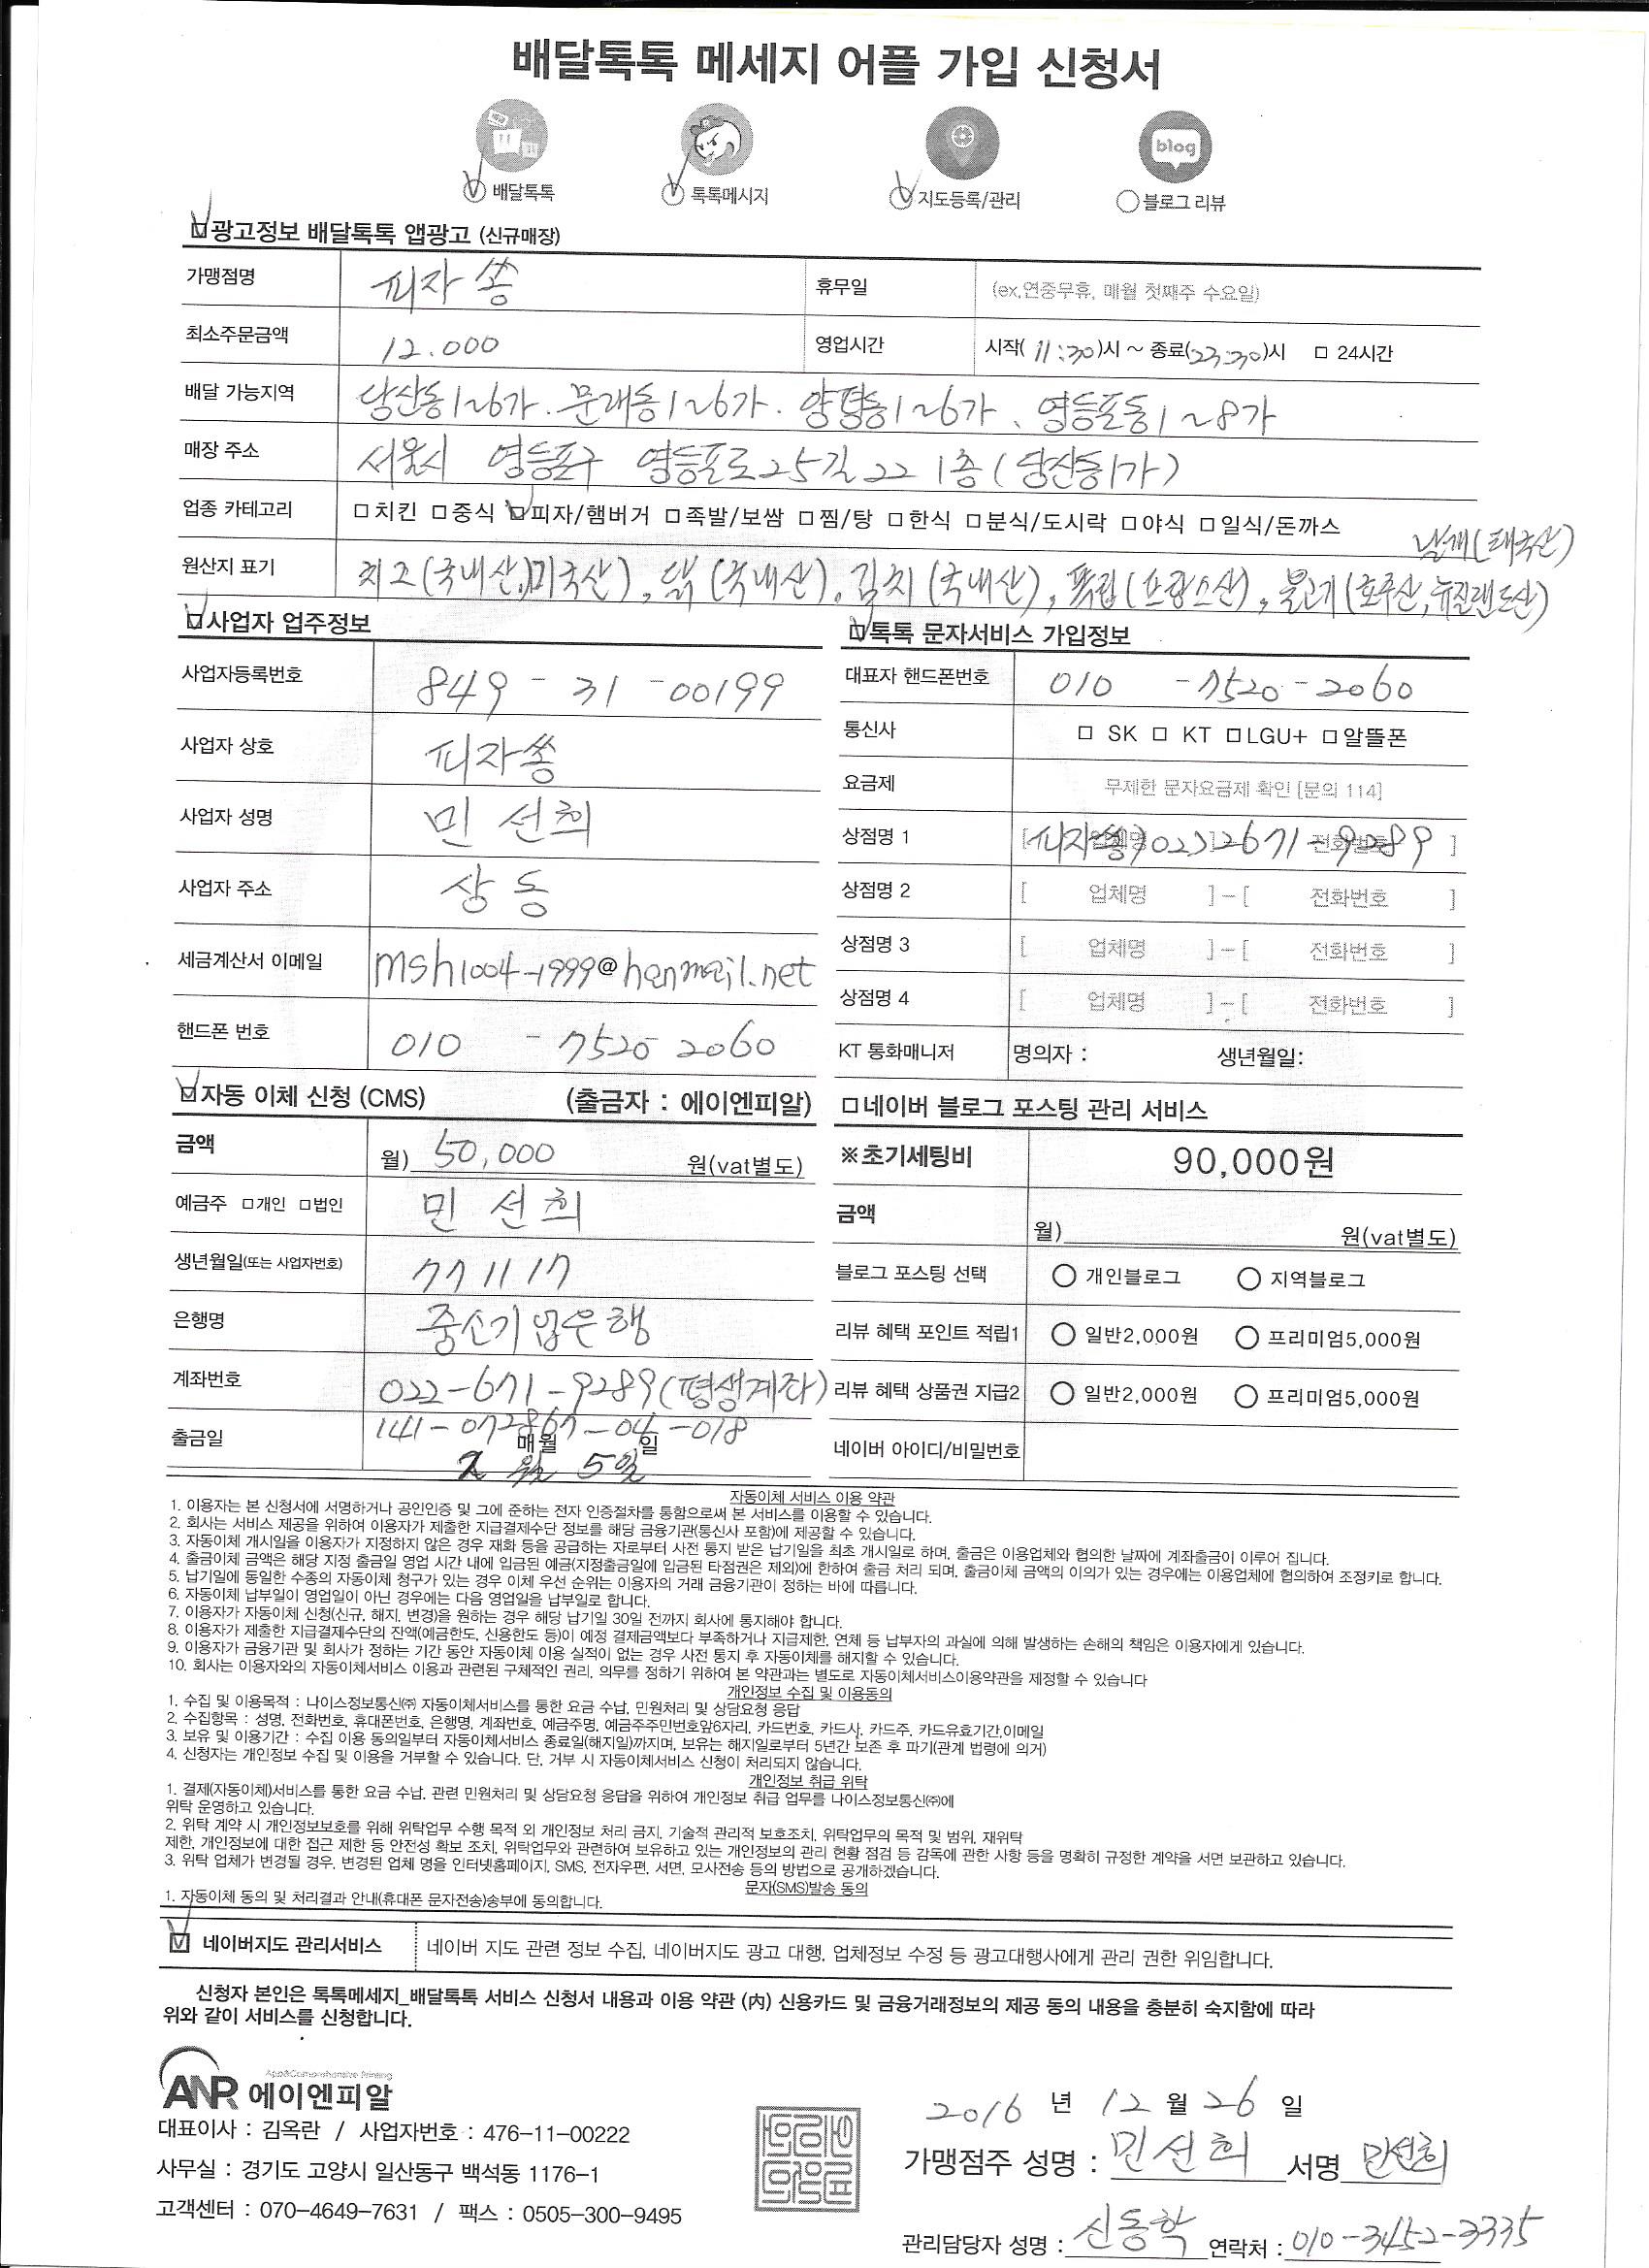 배달톡톡 메세지 어플 가입 신청서
blog
배달톡톡 톡톡메시지 지도등록/관리 블로그 리뷰
광고정보 배달톡톡 앱광고 (신규매장)
가맹점명 피자쏭 휴무일 (ex,연중무휴, 매월 첫째주 수요일)
최소주문금액 12.000 영업시간 시작( 11:30 )시 ~ 종료( 23:30 )시 □ 24시간
배달 가능지역 당산동1~6가. 문래동1~6가. 양평동1~6가、영등포동1~8가
매장 주소 서울시 영등포구 영등포로25길22 1층(당산동1가)
업종 카테고리 □치킨 □중식 □피자/햄버거 □족발/보쌈 □찜/탕 □한식 □분식/도시락 □야식 □일식/돈까스
날개(태국산)
원산지 표기 치즈(국내산,미국산), 닭(국내산), 김치(국내산), 폭립(프랑스산), 불고기(호주산,뉴질랜드산)
사업자 업주정보
사업자등록번호 849 - 31 - 00199
사업자 상호 피자쏭
사업자 성명 민선희
사업자 주소 상동
세금계산서 이메일 msh1004-1999@hanmail.net
핸드폰 번호 010 - 7520 2060
톡톡 문자서비스 가입정보
대표자 핸드폰번호 010 - 7520 - 2060
통신사 □ SK □ KT □LGU+ □알뜰폰
요금제 무제한 문자요금제 확인 [문의 114]
상점명 1 [피자쏭) 02) 2671-9289 ]
상점명 2 [ 업체명 ] - [ 전화번호 ]
상점명 3 [ 업체명 ] - [ 전화번호 ]
상점명 4 [ 업체명 ] - [ 전화번호 ]
KT 통화매니저 명의자 : 생년월일:
자동 이체 신청 (CMS) (출금자 : 에이엔피알)
금액 월) 50,000 원(vat별도)
예금주 □개인 □법인 민선희
생년월일(또는 사업자번호) 771117
은행명 중소기업은행
계좌번호 022-671-9289(평생계좌)
141-072867-04-018
출금일 매월 일
2월 5일
□네이버 블로그 포스팅 관리 서비스
※초기세팅비 90,000원
금액 월) 원(vat별도)
블로그 포스팅 선택 ○ 개인블로그 ○ 지역블로그
리뷰 혜택 포인트 적립1 ○ 일반2,000원 ○ 프리미엄5,000원
리뷰 혜택 상품권 지급2 ○ 일반2,000원 ○ 프리미엄5,000원
네이버 아이디/비밀번호
자동이체 서비스 이용 약관
1. 이용자는 본 신청서에 서명하거나 공인인증 및 그에 준하는 전자 인증절차를 통함으로써 본 서비스를 이용할 수 있습니다.
2. 회사는 서비스 제공을 위하여 이용자가 제출한 지급결제수단 정보를 해당 금융기관(통신사 포함)에 제공할 수 있습니다.
3. 자동이체 개시일을 이용자가 지정하지 않은 경우 재화 등을 공급하는 자로부터 사전 통지 받은 납기일을 최초 개시일로 하며, 출금은 이용업체와 협의한 날짜에 계좌출금이 이루어 집니다.
4. 출금이체 금액은 해당 지정 출금일 영업 시간 내에 입금된 예금(지정출금일에 입금된 타점권은 제외)에 한하여 출금 처리 되며, 출금이체 금액의 이의가 있는 경우에는 이용업체에 협의하여 조정키로 합니다.
5. 납기일에 동일한 수종의 자동이체 청구가 있는 경우 이체 우선 순위는 이용자의 거래 금융기관이 정하는 바에 따릅니다.
6. 자동이체 납부일이 영업일이 아닌 경우에는 다음 영업일을 납부일로 합니다.
7. 이용자가 자동이체 신청(신규, 해지, 변경)을 원하는 경우 해당 납기일 30일 전까지 회사에 통지해야 합니다.
8. 이용자가 제출한 지급결제수단의 잔액(예금한도, 신용한도 등)이 예정 결제금액보다 부족하거나 지급제한, 연체 등 납부자의 과실에 의해 발생하는 손해의 책임은 이용자에게 있습니다.
9. 이용자가 금융기관 및 회사가 정하는 기간 동안 자동이체 이용 실적이 없는 경우 사전 통지 후 자동이체를 해지할 수 있습니다.
10. 회사는 이용자와의 자동이체서비스 이용과 관련된 구체적인 권리, 의무를 정하기 위하여 본 약관과는 별도로 자동이체서비스이용약관을 제정할 수 있습니다
개인정보 수집 및 이용동의
1. 수집 및 이용목적 : 나이스정보통신㈜ 자동이체서비스를 통한 요금 수납, 민원처리 및 상담요청 응답
2. 수집항목 : 성명, 전화번호, 휴대폰번호, 은행명, 계좌번호, 예금주명, 예금주주민번호앞6자리, 카드번호, 카드사, 카드주, 카드유효기간,이메일
3. 보유 및 이용기간 : 수집 이용 동의일부터 자동이체서비스 종료일(해지일)까지며, 보유는 해지일로부터 5년간 보존 후 파기(관계 법령에 의거)
4. 신청자는 개인정보 수집 및 이용을 거부할 수 있습니다. 단, 거부 시 자동이체서비스 신청이 처리되지 않습니다.
개인정보 취급 위탁
1. 결제(자동이체)서비스를 통한 요금 수납, 관련 민원처리 및 상담요청 응답을 위하여 개인정보 취급 업무를 나이스정보통신㈜에
위탁 운영하고 있습니다.
2. 위탁 계약 시 개인정보보호를 위해 위탁업무 수행 목적 외 개인정보 처리 금지, 기술적 관리적 보호조치, 위탁업무의 목적 및 범위, 재위탁
제한, 개인정보에 대한 접근 제한 등 안전성 확보 조치, 위탁업무와 관련하여 보유하고 있는 개인정보의 관리 현황 점검 등 감독에 관한 사항 등을 명확히 규정한 계약을 서면 보관하고 있습니다.
3. 위탁 업체가 변경될 경우, 변경된 업체 명을 인터넷홈페이지, SMS, 전자우편, 서면, 모사전송 등의 방법으로 공개하겠습니다.
문자(SMS)발송 동의
1. 자동이체 동의 및 처리결과 안내(휴대폰 문자전송)송부에 동의합니다.
네이버지도 관리서비스 네이버 지도 관련 정보 수집, 네이버지도 광고 대행, 업체정보 수정 등 광고대행사에게 관리 권한 위임합니다.
신청자 본인은 톡톡메세지_배달톡톡 서비스 신청서 내용과 이용 약관 (內) 신용카드 및 금융거래정보의 제공 동의 내용을 충분히 숙지함에 따라
위와 같이 서비스를 신청합니다.
App&Comprehensive Printing
ANR 에이엔피알
대표이사 : 김옥란 / 사업자번호 : 476-11-00222
사무실 : 경기도 고양시 일산동구 백석동 1176-1
고객센터 : 070-4649-7631 / 팩스 : 0505-300-9495
2016 년 12 월 26 일
가맹점주 성명 : 민선희 서명 민선희
관리담당자 성명 : 신동학 연락처 : 010-3452-3335